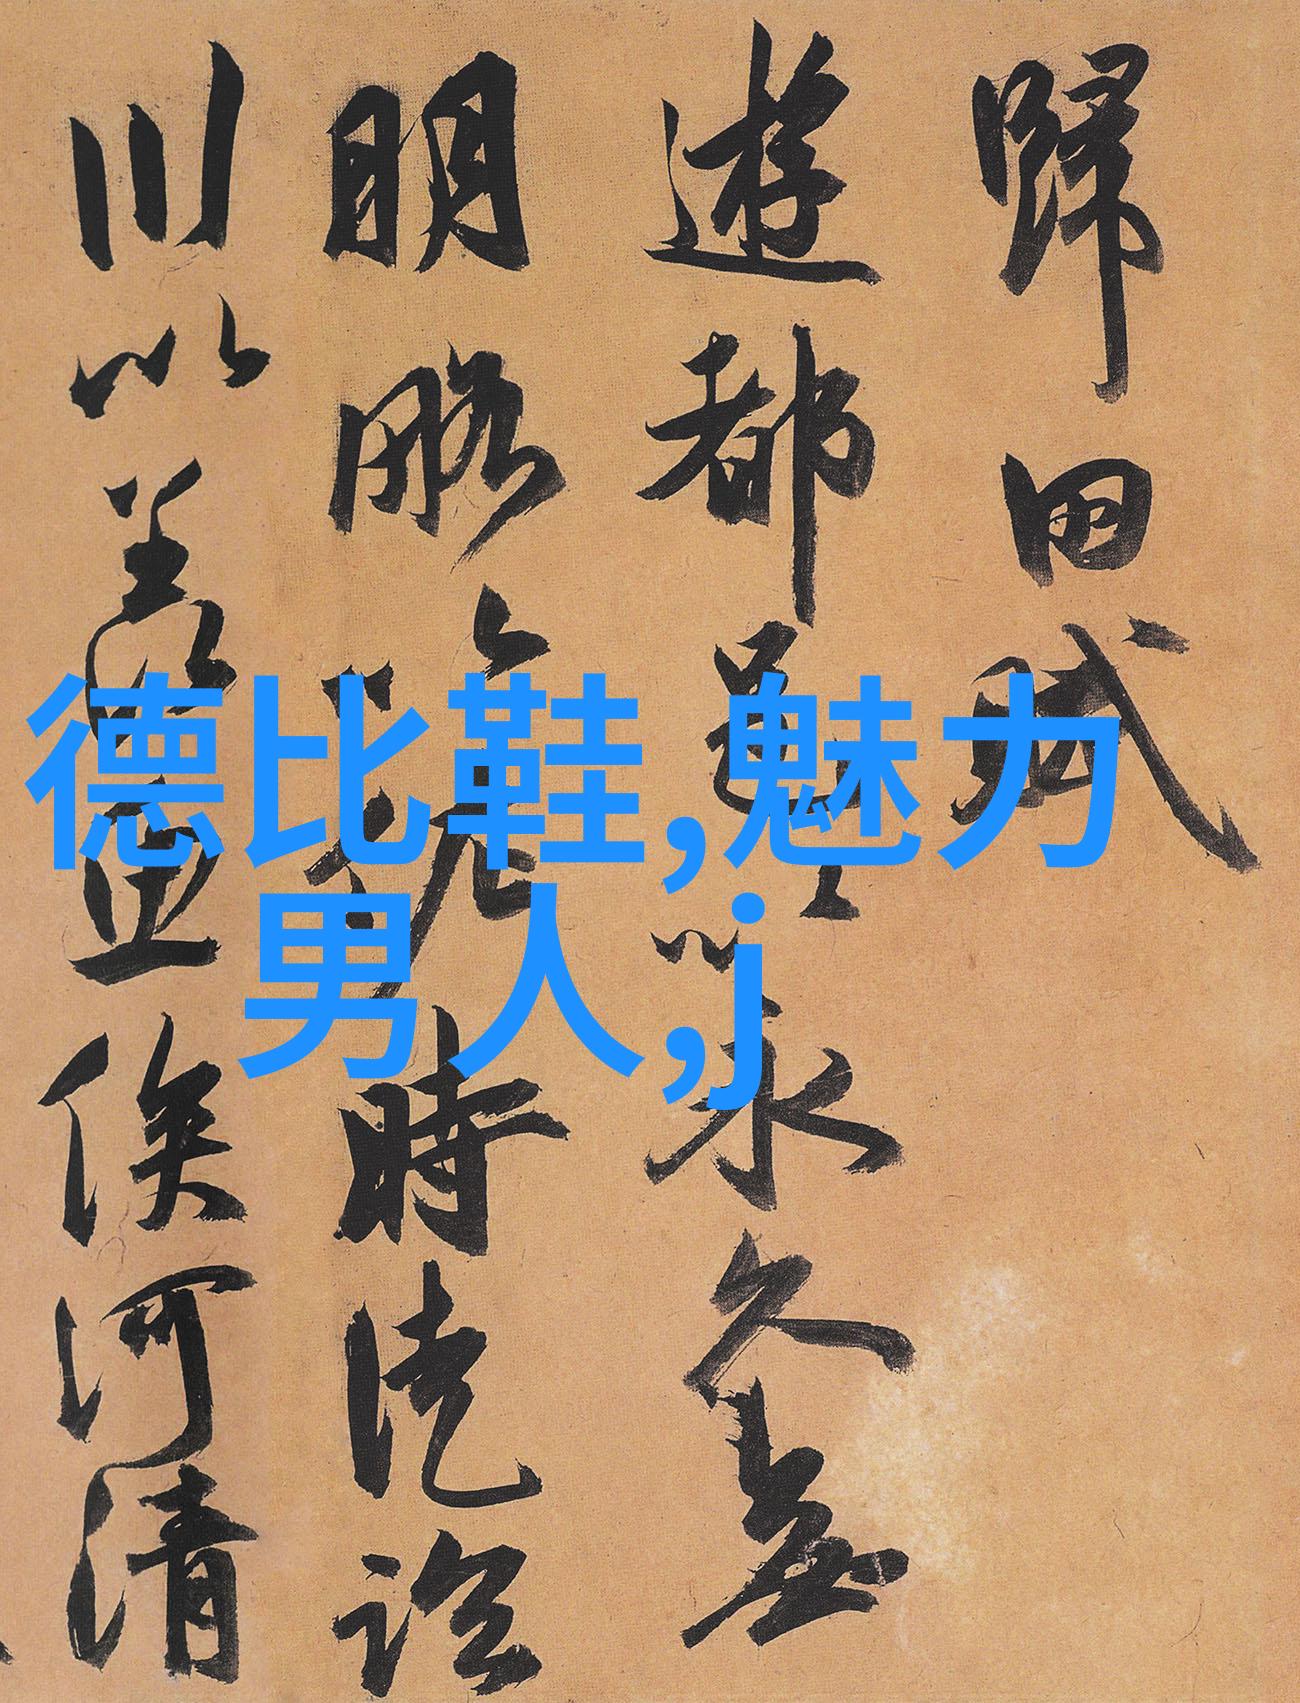 歸田賦
遊都邑以永久無
明略以佐時徒臨
川以羡魚俟河清
德比鞋,魅力
男人,j